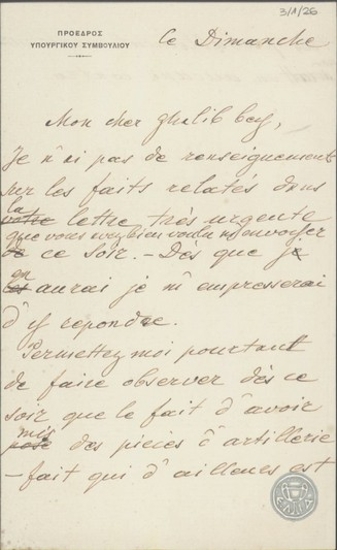 3/1/26
ΠΡΟΕΔΡΟΣ
ΥΠΟΥΡΓΙΚΟΥ ΣΥΜΒΟΥΛΙΟΥ
Ce Dimanche
Mon cher Ghalib bey,
Je n'ai pas de renseignements
sur les faits relatés dans
la
votre lettre très urgente
que vous avez bien voulu m'envoyer
de ce soir. - Dès que je
en
les aurai je m'empresserai
d'y repondre.
Permettez moi pourtant
de faire observer dès ce
soir que le fait d'avoir
mis
posé des pièces d'artillerie
- fait qui d'ailleurs est